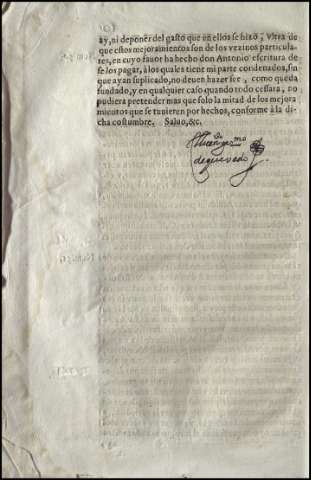 ay, ni deponer del gasto que en ellos se hizo, Vltra de
que estos mejoramientos son de los vezinos particula-
res, en cuyo fauor ha hecho don Antonio escritura de
se los pagar, a los quales tiene mi parte condenados, sin
que ayan suplicado, no deuen hazerse, como queda
fundado, y en qualquier caso quando todo cessara, no
pudiera pretender mas que solo la mitad de los mejora
mientos que se tuuieren por hechos, conforme à la di-
cha costumbre. Saluo, &c.
de queuedo